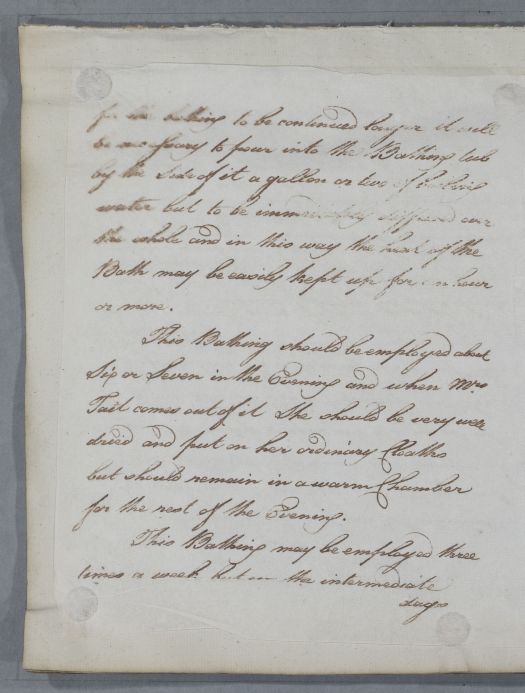 for the bathing to be continued longer it will
be necessary to pour into the Bathing tub
by the side of it a gallon or two of boiling
water but to be immediately diffused over
the whole and in this way the heat of the
Bath may be easily kept up for an hour
or more.
This Bathing should be employed about
Six or Seven in the Evening and when Mrs
Tait comes out of it She should be very well
dried and put on her ordinary Cloaths
but should remain in a warm Chamber
for the rest of the Evening.
This Bathing may be employed three
times a week but on the intermediate
days